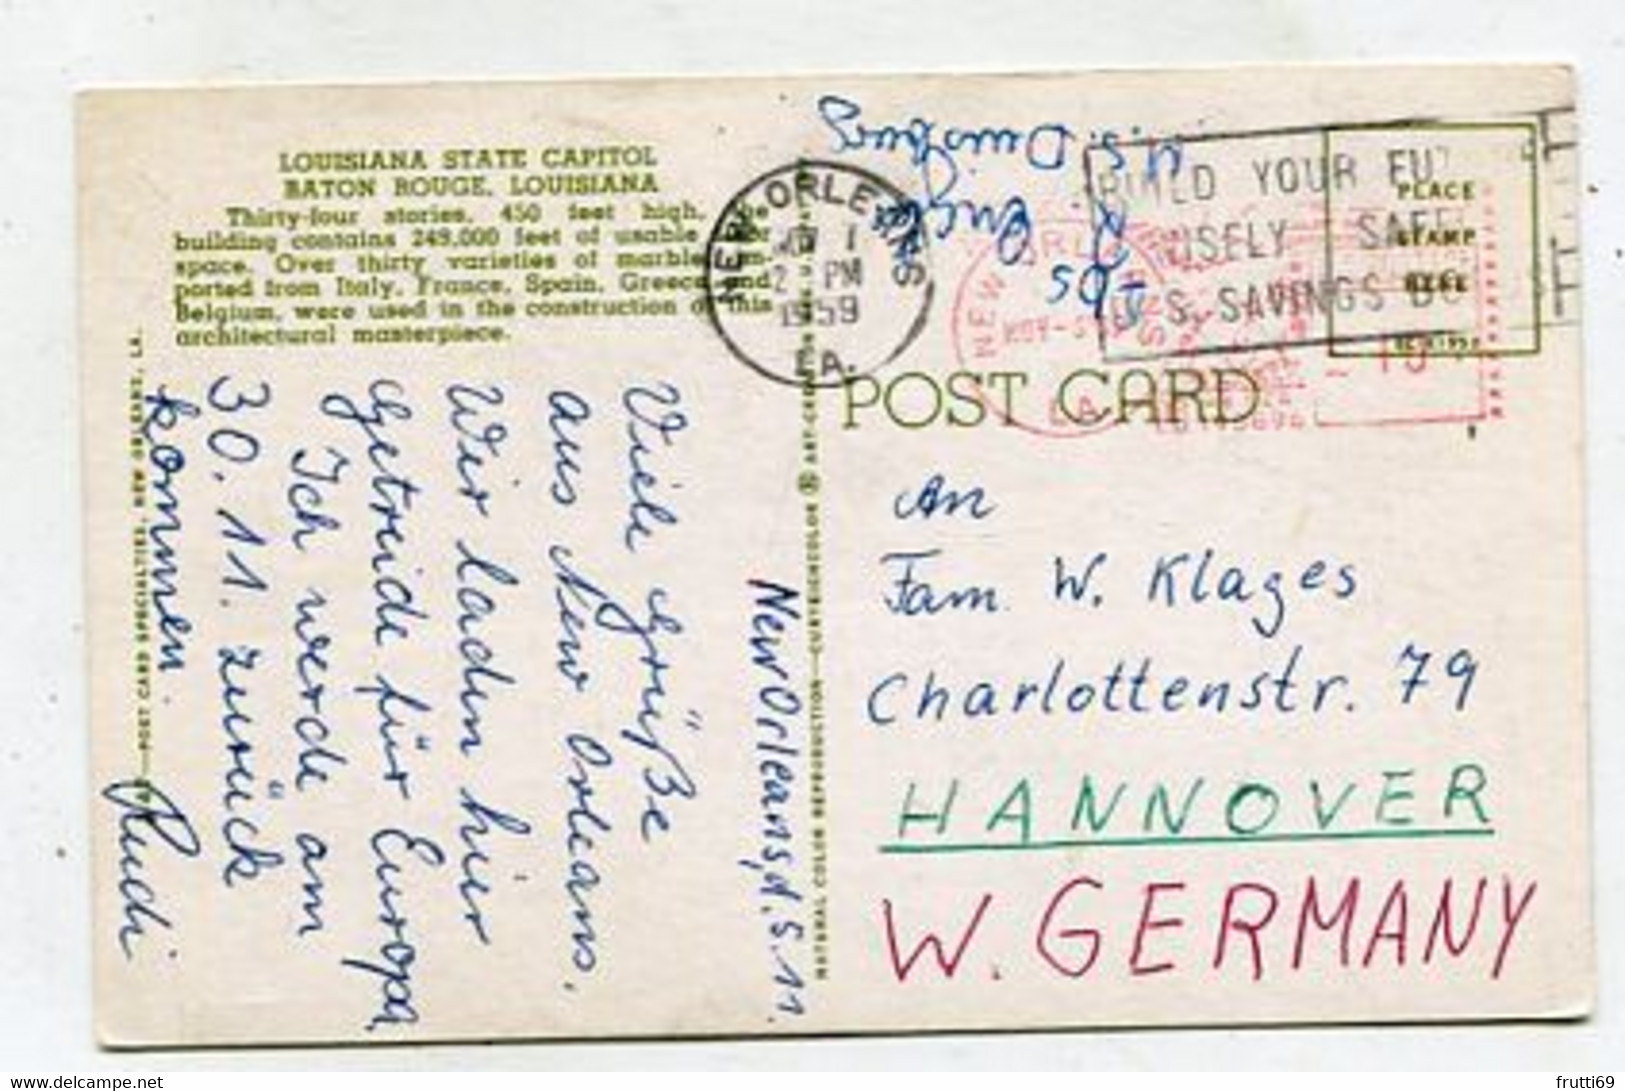 LOUISIANA STATE CAPITOL
BATON ROUGE, LOUISIANA
Thirty-four stories, 450 feet high, the
building contains 249,000 feet of usable
space. Over thirty varieties of marble im-
ported from Italy, France, Spain, Greece and
Belgium, were used in the construction of this
architectural masterpiece.
POST CARD SPECIALTIES, NEW ORLEANS, LA.
New Orleans, d. 5. 11.
Viele Grüße
aus New Orleans.
Wir laden hier
Getreide für Europa
Ich werde am
30. 11. zurück
kommen.
Rudi
NATURAL COLOR REPRODUCTION—CURTEICHCOLOR ® ART-CREATION
NEW ORLEANS
1
2 PM
1959
LA.
BUILD YOUR FUTURE
WISELY SAFELY
U.S. SAVINGS BONDS
Abs.
M.S. Duisburg
NEW ORLEANS
NOV-5
LA
15
PLACE
STAMP
HERE
POST CARD
An
Fam. W. Klages
Charlottenstr. 79
HANNOVER
W. GERMANY
frutti69